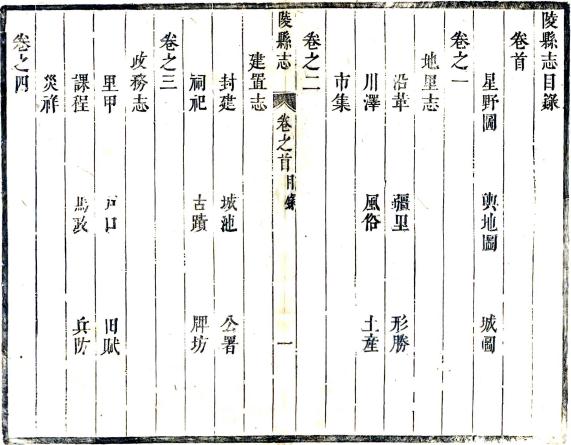 陵縣志目錄
卷首
星野圖 輿地圖 城圖
卷之一
地里志
沿革 疆里 形勝
川澤 風俗 土產
市集
卷之二
陵縣志 卷之首目錄 一
建置志
封建 城池 公署
祠祀 古蹟 牌坊
卷之三
政務志
里甲 戶口 田賦
課程 馬政 兵防
災祥
卷之四